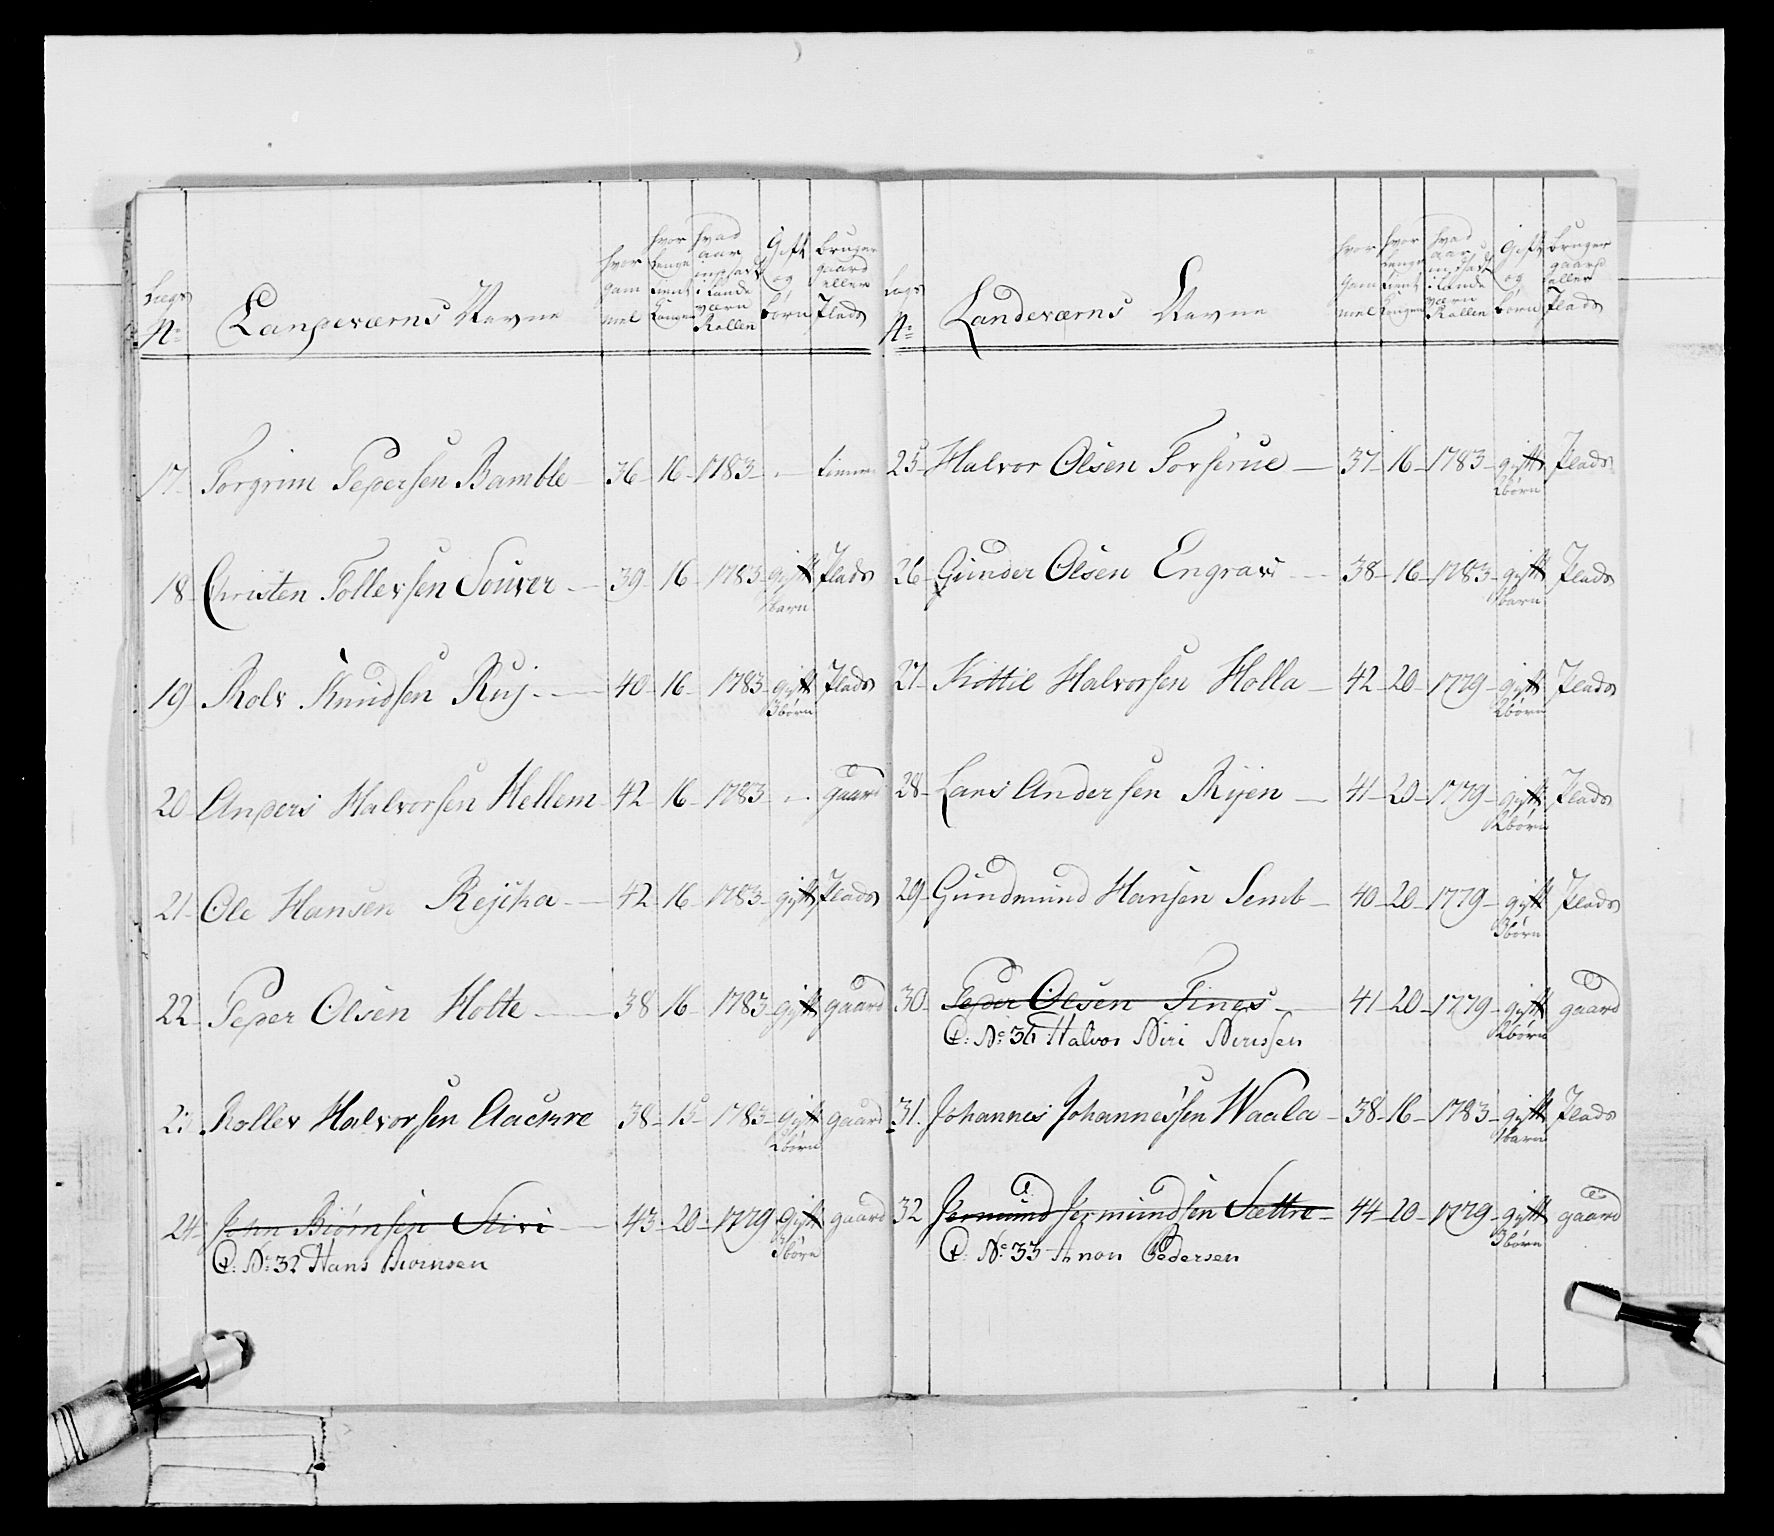 Lægs No Landeværns Navne hvor gam mel hvor lenge tient Kongen hvad aar indsadt i Lande værn Rollen Gift og børn bruger gaard eller Plads
17 Torgrim Pedersen Bamble 36 16 1783 - tiener
18 Christen Tollevsen Souver 39 16 1783 gift Plads
1 barn
19 Rolv Knudsen Ruj 40 16 1783 gift Plads
3 børn
20 Anders Halvorsen Hellem 42 16 1783 - gaard
21 Ole Hansen 42 16 1783 gift Plads
22 Peder Olsen Holte 38 16 1783 gift gaard
23 Rollev Halvorsen 38 15 1783 gift gaard
2 børn
24 John Biørnsen 43 20 1779 gift gaard
C: No 32 Hans 3 børn
Lægs No Landeværns Navne hvor gam mel hvor lenge tient Kongen hvad aar indsadt i Lande værn Rollen Gift og børn bruger gaard eller Plads
25 Halvor Olsen Forserue 37 16 1783 gift Plads
2 børn
26 Gunder Olsen Engrav 38 16 1783 gift Plads
1 barn
27 Kittil Halvorsen Holla 42 20 1779 gift Plads
2 børn
28 Lars Andersen Rijen 41 20 1779 gift Plads
2 børn
29 Gundmund Hansen Semb 40 20 1779 gift Plads
3 børn
30 Peder Olsen Fines 41 20 1779 gift gaard
C: No 36 Halvor Niri Nirissen 2 børn
31 Johannes Johannessen Waala 38 16 1783 gift Plads
1 barn
32 Jermund Jermundsen Sættre 44 20 1779 gift gaard
C: No 33 Anon Pedersen 3 børn